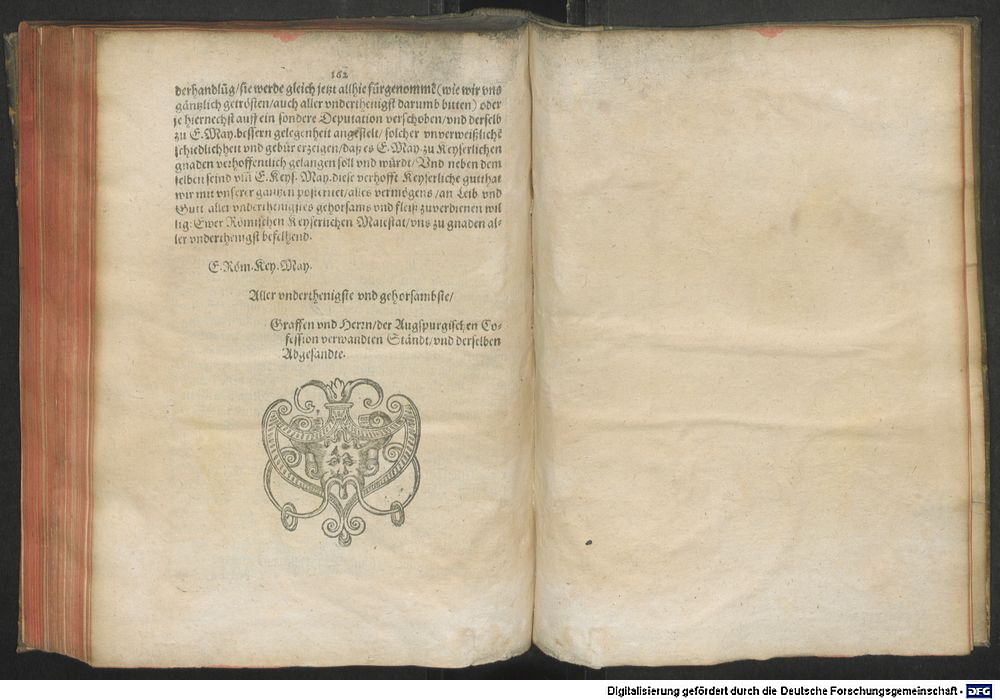 162
derhandlūg/sie werde gleich jetzt allhie fürgenommē (wie wir vns
gäntzlich getrösten/auch aller vnderthenigst darumb bitten) oder
je hiernechst auff ein sondere Deputation verschoben/vnd derselb
zu E. May. bessern gelegenheit angestelt/ solcher vnverweißlichē
schiedlichheit vnd gebür erzeigen/daß es E. May. zu Keyserlichen
gnaden verhoffentlich gelangen soll vnd würdt/ Vnd neben dem
selben seind vm̄ E. Keys. May. diese verhofft Keyserliche gutthat
wir mit vnserer gantzen posteritet/alles vermögens/an Leib vnd
Gutt aller vnderthenigstes gehorsams vnd fleiß zuverdienen wil
lig: Ewer Römischen Keyserlichen Maiestat/vns zu gnaden al-
ler vnderthenigst befelhend.
E. Röm. Key. May.
Aller vnderthenigste vnd gehorsambste/
Graffen vnd Herrn/der Augspurgischen Co-
fession verwandten Ständt/vnd derselben
Abgesandte.
Digitalisierung gefördert durch die Deutsche Forschungsgemeinschaft - DFG